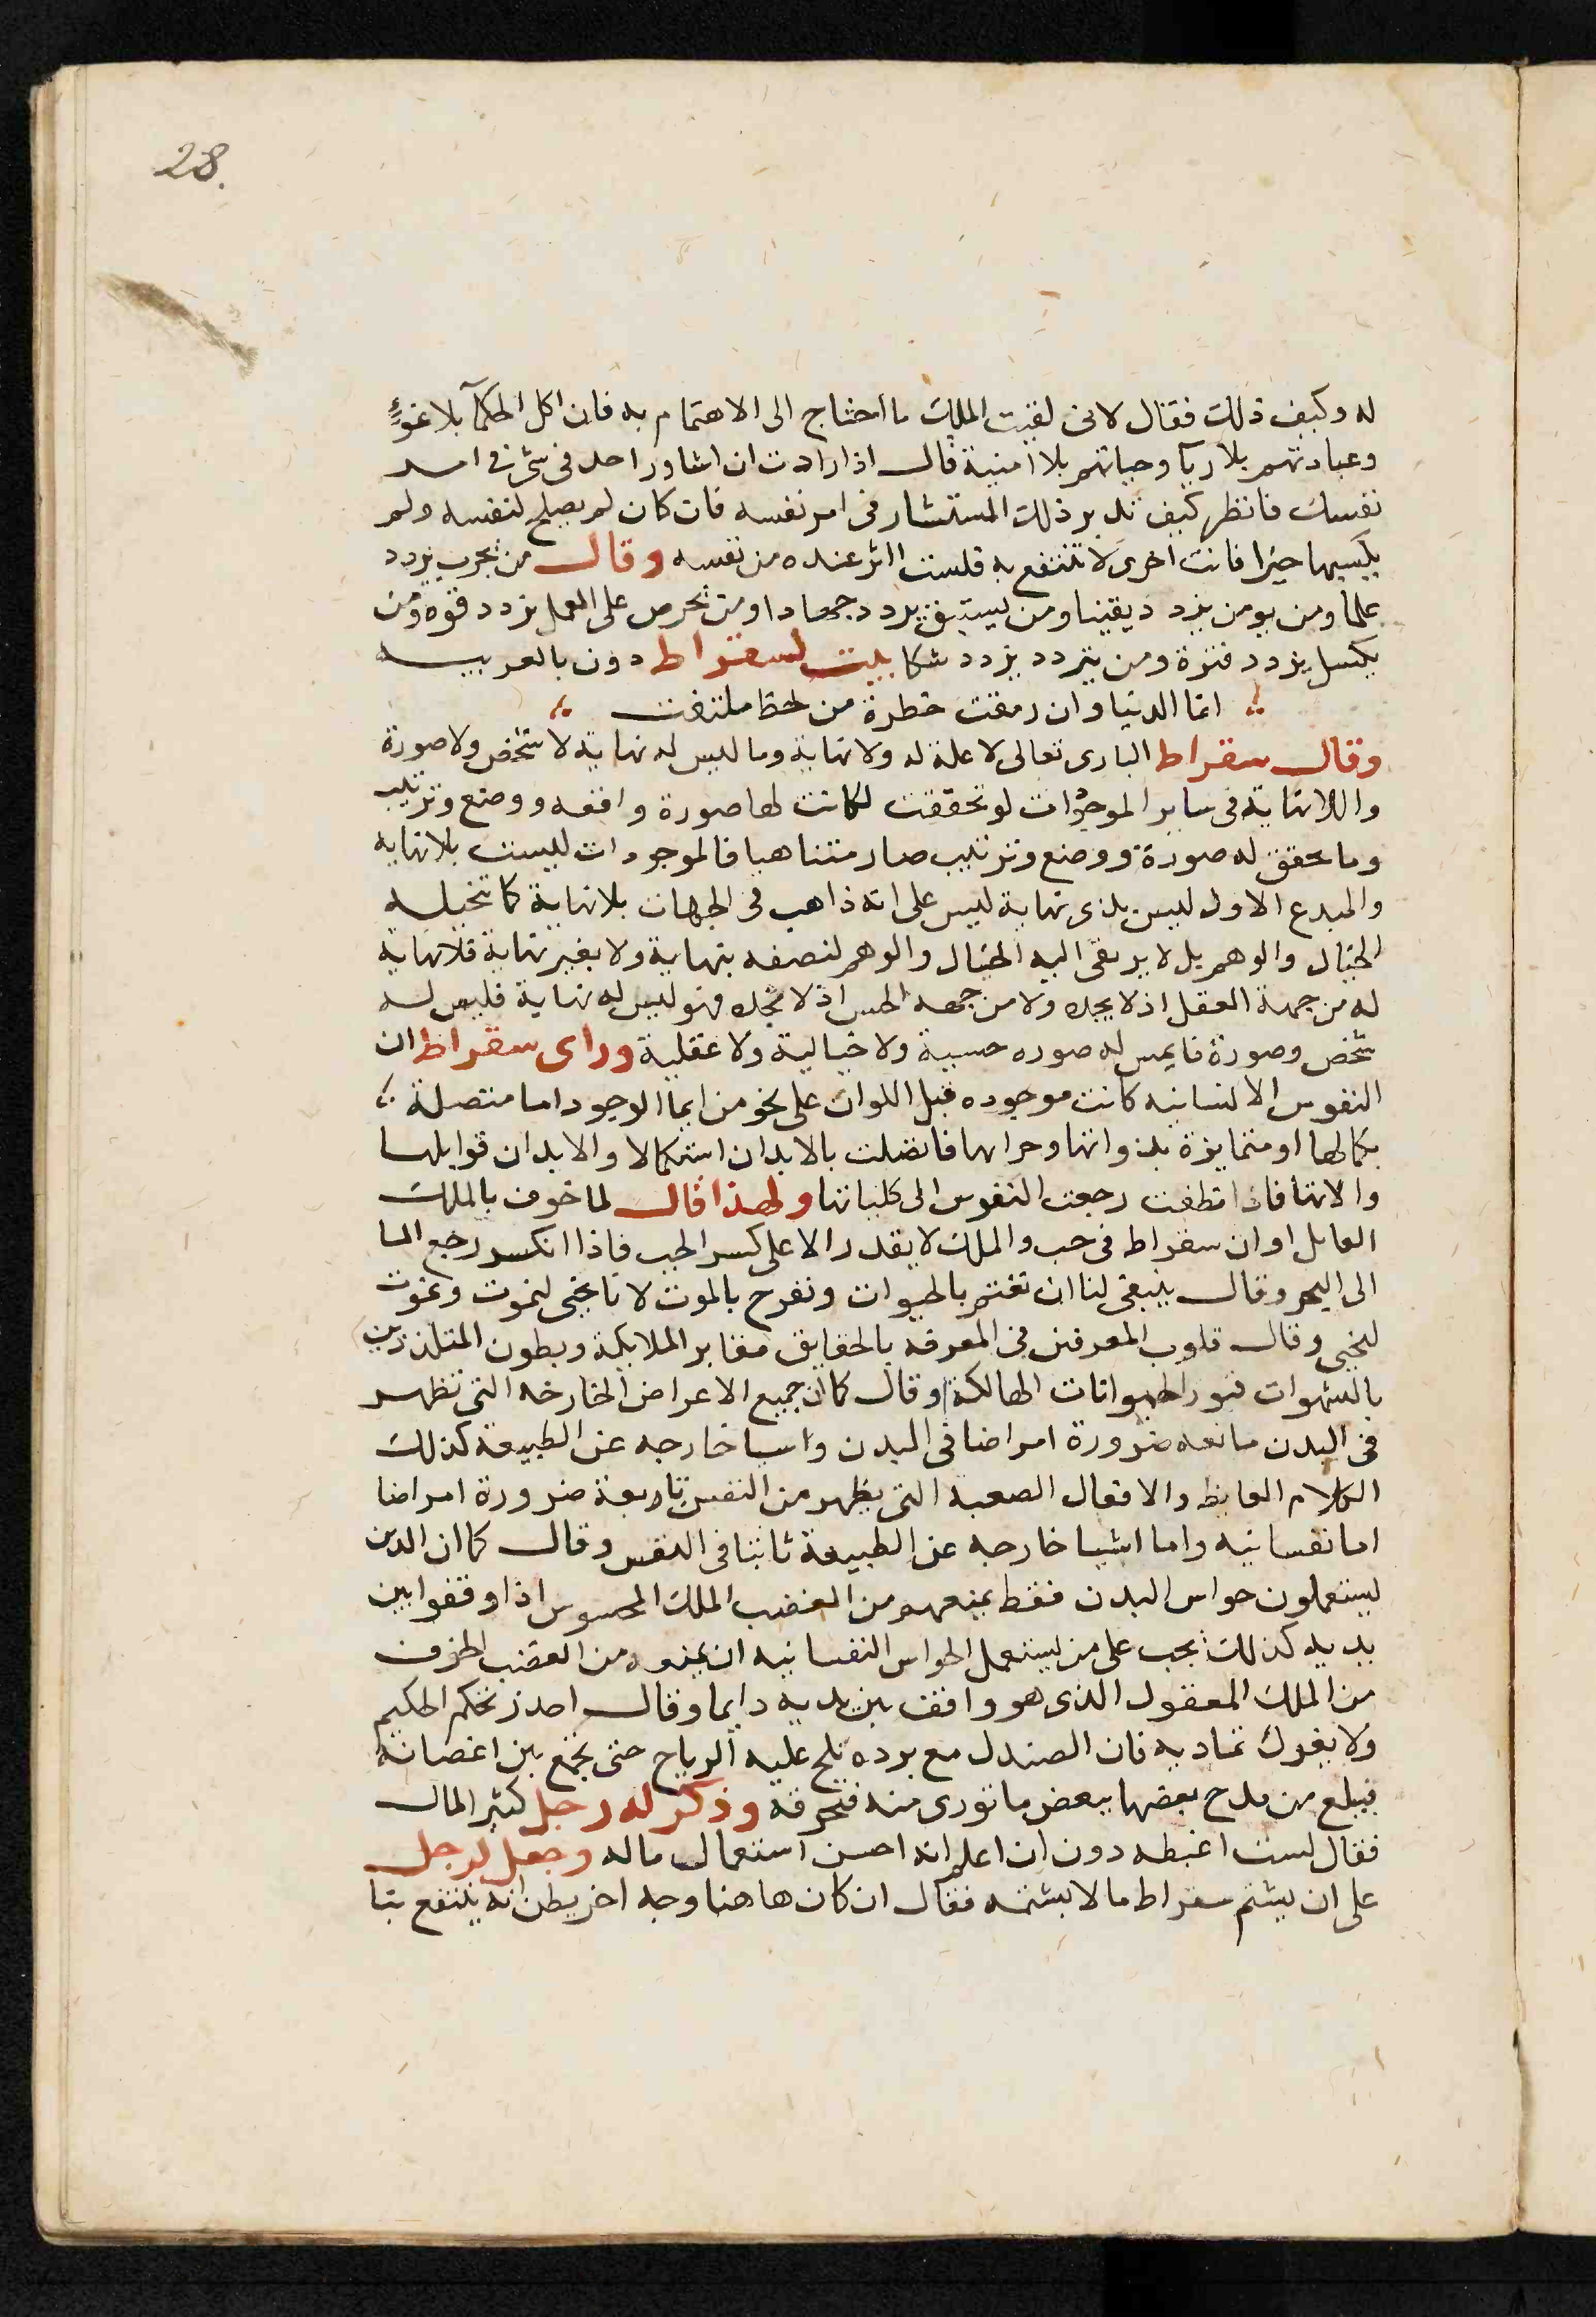 28.
له وكيف ذلك فقال لاني لقيت الملك ما احتاج الى الاهتمام به فان اكل الحكمآ بلا
وعبادتهم بلا ريآ وحياتهم بلا امنية قال اذا اردت ان اشاور احد في شي في امر
نفسك فانظر كيف تدبر ذلك المستشار في امر نفسه فان كان لم يصلح لنفسه ولم
يكسبها خيرا فانت احرى لا تنتفع به فلست اثر عنده من نفسه وقال من يجرب يزدد
علما ومن يومن يزدد يقينا ومن يستيقن يزدد جهادا ومن يحرص على العمل يزدد قوه ومن
يكسل يزدد فترة ومن يتردد يزدد شكا بيت لسقراط دون بالعربيه
انما الدنيا وان رمقت خطرة من لحظ ملتفت
وقال سقراط البارى تعالى لا علة له ولا نهاية وما ليس له نهاية لا شخص ولا صورة
واللانهاية في ساير الموجودات لو تحققت لكانت لها صورة واقعه ووضع وترتيب
وما تحقق له صورة ووضع وترتيب صار متناهيا فالموجودات ليست بلا نهايه
والمبدع الاول ليس بذى نهاية ليس على انه ذاهب في الجهات بلا نهاية كما تخيله
الخيال والوهم بل لا يرتقى اليه الخيال والوهم لتصفه بنهاية ولا بغير نهاية فلا نهاية
له من جهة العقل اذ لا يحده ولا من جهه الحس اذ لا يحده فهو ليس له نهاية فليس له
شخص وصورة فايس له صوره حسية ولا خيالية ولا عقلية وراى سقراط ان
النفوس الانسانيه كانت موجوده قبل اللوان على نحو من انحا الوجود اما متصلة
بكمالها او متمايزة بذواتها وخواصها فاتصلت بالابدان استكمالا والابدان قوابلها
والاتها فاذا تطفت رجعت النفوس الى كلياتها ولهذا قال لما خوف بالملك
العامل او ان سقراط في حب والملك لا يقدر الا على كسر الحب فاذا انكسر رجع الما
الى البحر وقال ينبغى لنا ان نغتم بالحيوات ونفرح بالموت لانا نحيى لنموت ونموت
لنحيى وقال قلوب المعرفين في المعرفه بالحقايق مقابر الملايكة وبطون المتلذذين
بالشهوات قبور الحيوانات الهالكة وقال كما ان جميع الاعراض الخارجه التي تظهر
في البدن مانعه ضرورة امراضا في البدن واشيا خارجه عن الطبيعة كذلك
الكلام الغايظ والافعال الصعبه التي يظهر من النفس تاربعة ضرورة امراضا
اما نفسانيه واما اشيا خارجه عن الطبيعة ثابتا في النفس وقال كما ان الذين
يستعملون حواس البدن فقط يمنعهم من الغضب الملك المحسوس اذا وقفوا بين
يديه كذلك يجب على من يستعمل الحواس النفسانيه ان يمنعه من الغضب الخوف
من الملك المعقول الذي هو واقف بين يديه دايما وقال احذر تحكم الحكيم
ولا يغرك تماديه فان الصندل مع برده تلح عليه الرياح حتى يجمع بين اغصانه
فيبلغ من قدح بعضها ببعض ما تورى منه فتحرقه وذكر له رجل كثير المال
فقال لست اغبطه دون ان اعلم انه احسن استعمال ماله وجعل لرجل
على ان يشتم سقراط مالا بشتمه فقال ان كان هاهنا وجه اخر يظن انه ينتفع بنا